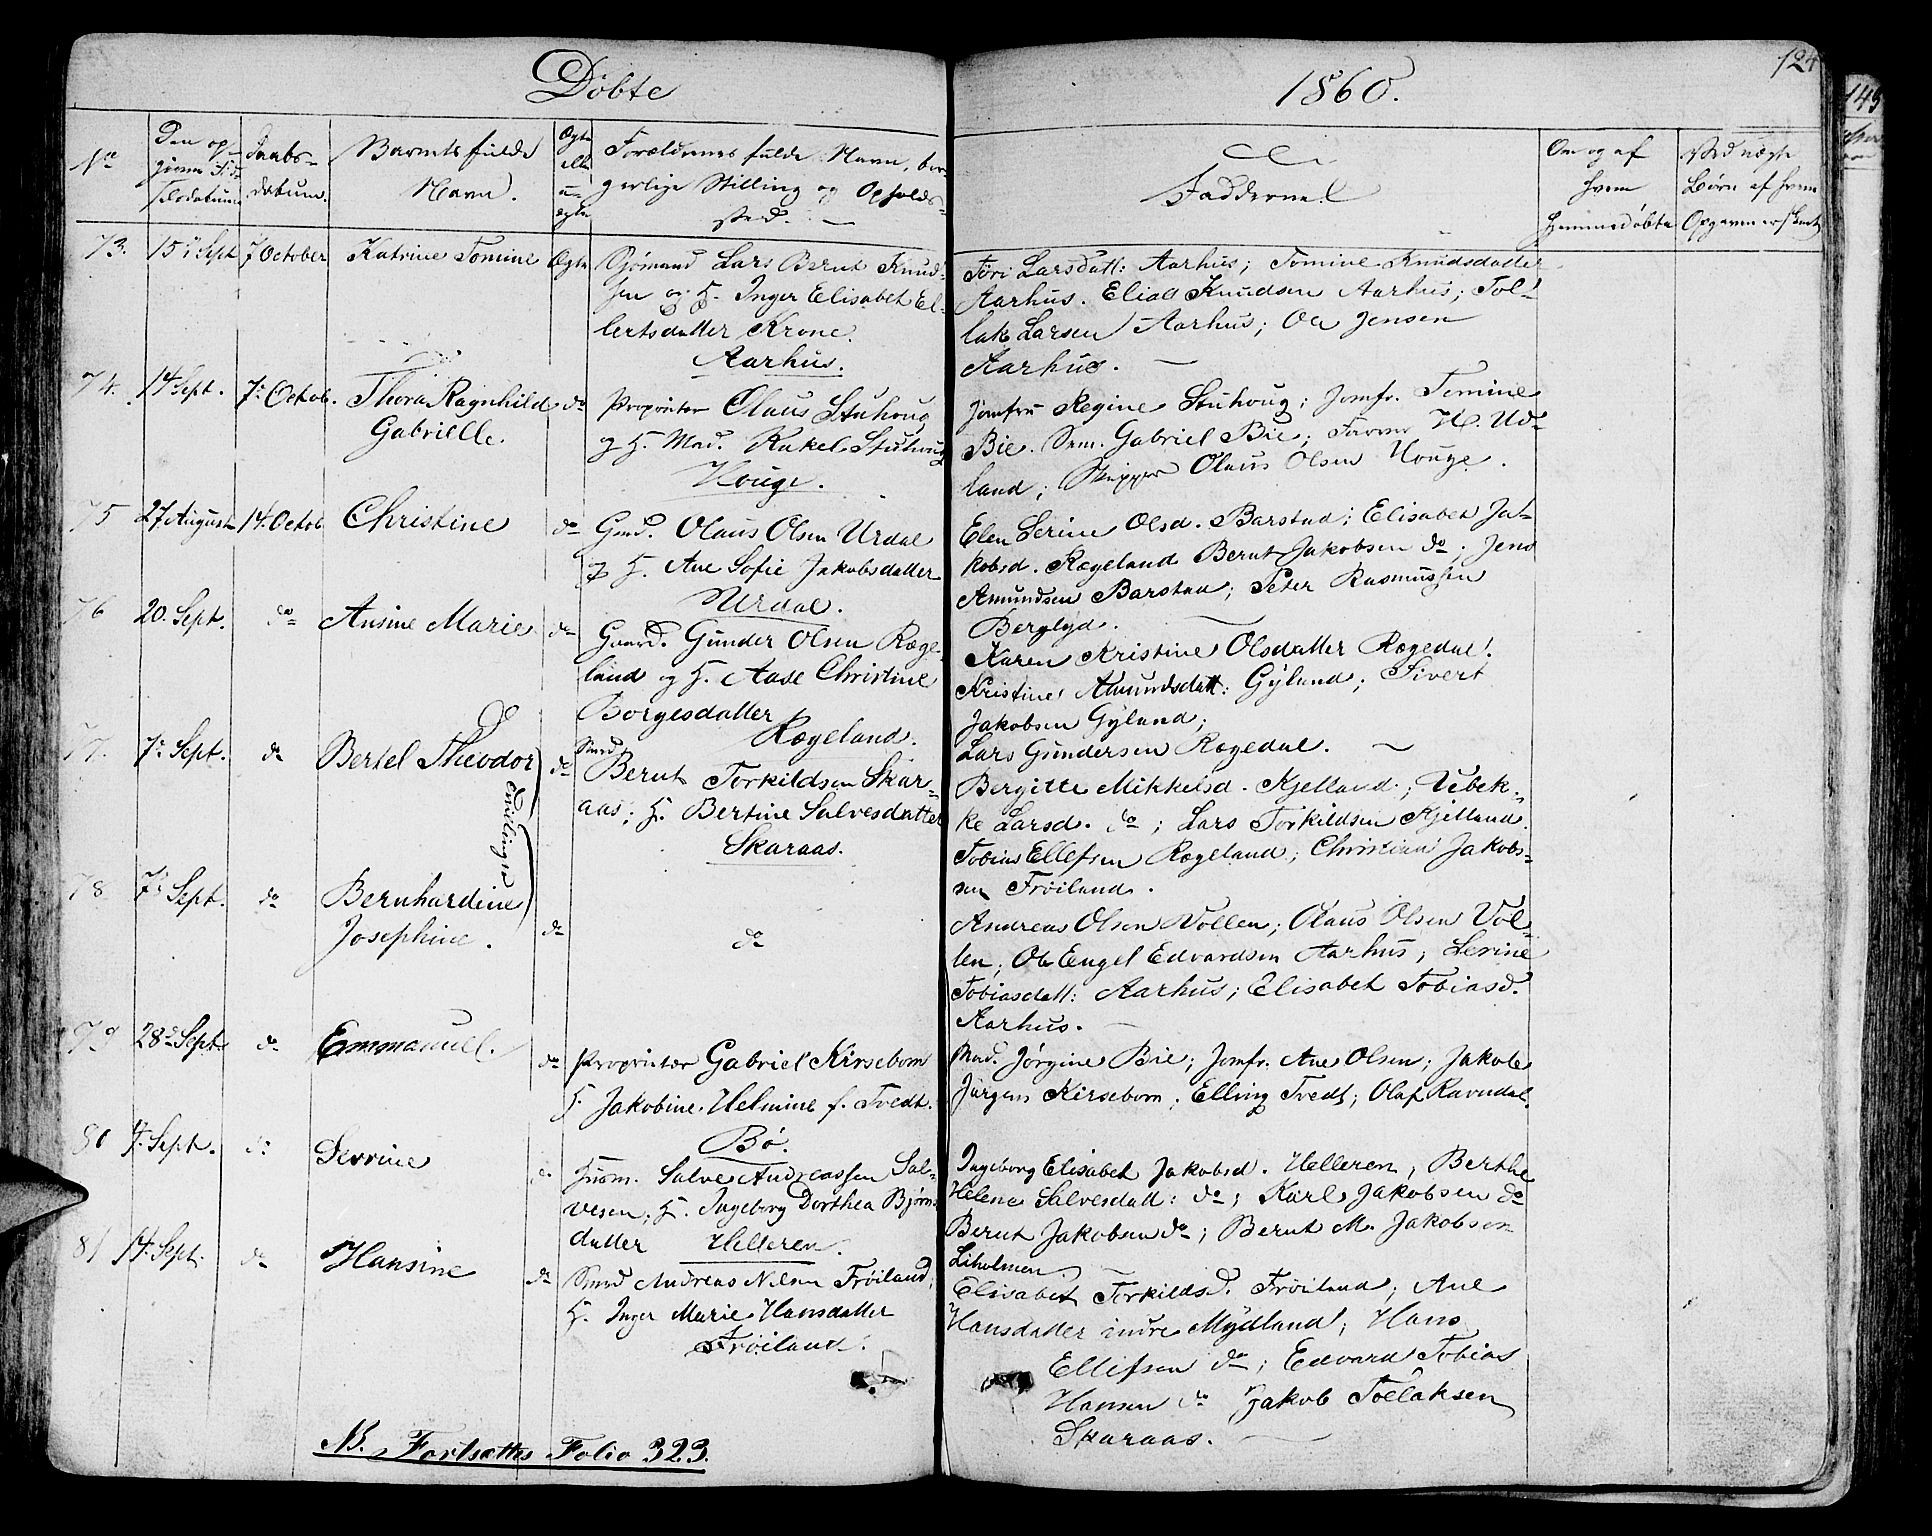 Døbte
1860.
124
143
No
Den op-
givne Fød-
selsdatum
Daabs-
datum.
Barnets fulde
Navn.
Ægte
eller
u-
ægte
Forældrenes fulde Navn, bor-
gerlige Stilling og Opholds-
sted.
Faddernel
Om og af
hvem
hjemmedøbte
Ved uægte
Børn af hvem
Opgaven er skeet
73. 15de Sept 7 October Katrine Tomine Ægte Sjømand Lars Bernt Knud-
sen og H. Inger Elisabet El-
lertsdatter Krone.
Aarhus.
Tøri Larsdatt: Aarhus; Tomine Knudsdatter
Aarhus. Elias Knudsen Aarhus; Tol-
lak Larsen Aarhus; Ole Jensen
Aarhus.
74. 14 Sept. 7: Octob. Thora Ragnhild Gabrielle. do Proprietær Olaus Stuhoug
og H. Mad. Rakel Stuhoug
Houge.
Jomfru Regine Stuhoug; Jomfr. Tomine
Bie. Sem. Gabriel Bie; Farver H. Ud-
land; Skipper Olaus Olsen Houge.
75 27 August 14. Octob Christine do Gmd. Olaus Olsen Urdal
og H. Ane Sofie Jakobsdatter
Urdal.
Elen Serine Olsd. Barstad; Elisabet Ja-
kobsd. Rægeland Bernt Jakobsen do; Jens
Amundsen Barstad; Peter Rasmussen
Berglyd.
76 20. Sept. do Ansine Marie do Gaard. Gunder Olsen Ræge-
land og H. Aase Christine
Borgesdatter
Rægeland.
Karen Kristine Olsdatter Rægedal.
Kristine Amundsdatt: Gyland; Sivert
Jakobsen Gyland;
Lars Gundersen Rægedal.
77. 7: Sept. do Bertel Theodor do Smed
Bernt Torkildsen Skar-
aas; H. Bertine Salvesdatter
Skaraas.
Tvillinger
Bergitte Mikkelsd. Kjelland; Vibek-
ke Larsd. do; Lars Torkildsen Kjelland.
Tobias Ellefsen Rægeland; Christian Jakob-
sen Frøiland.
78 7: Sept. do Bernhardine
Josephine. do do
Andreas Olsen Vollen; Olaus Olsen Vol-
len; Ole Engel Edvardsen Aarhus; Serine
Tobiasdatt: Aarhus; Elisabet Tobiasd.
Aarhus.
79 28de Sept do Emmanuel. do Proprietær Gabriel Kirsebom
H. Jakobine Helmine f. Tvedt.
Bø.
Mad. Jørgine Bie; Jomfr. Ane Olsen; Jakob
Jürgens Kirsebom; Elling Tvedt; Olaf Ravndal.
80 4. Sept. do Serrine do Husm. Salve Andreassen Sal-
vesen; H. Ingeborg Dorthea Bjørns
datter Helleren.
Ingeborg Elisabet Jakobsd. Helleren; Berthe
Helene Salvesdatt: do; Karl Jakobsen do
Bernt Jakobsen do; Bernt M. Jakobsen
Liholmen
81 14. Sept. do Hansine do Smed Andreas Nilsen Frøiland;
H. Inger Marie Hansdatter
Frøiland.
Elisabet Torkildsd. Frøiland; Ane
Hansdatter indre Mydland; Hans
Ellefsen do; Edvard Tobias
Hansen do Jakob Tollaksen
Skaraas.
NB. Fortsættes Folio 323.